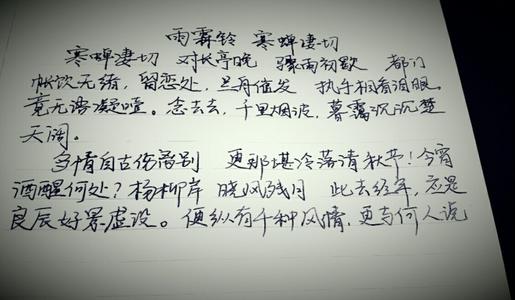 雨霖铃 寒蝉凄切
寒蝉凄切 对长亭晚 骤雨初歇 都门
帐饮无绪,留恋处,兰舟催发 执手相看泪眼。
竟无语凝噎。念去去,千里烟波,暮霭沉沉楚
天阔。
多情自古伤离别 更那堪冷落清秋节!今宵
酒醒何处?杨柳岸 晓风残月 此去经年,应是
良辰好景虚设。便纵有千种风情,更与何人说